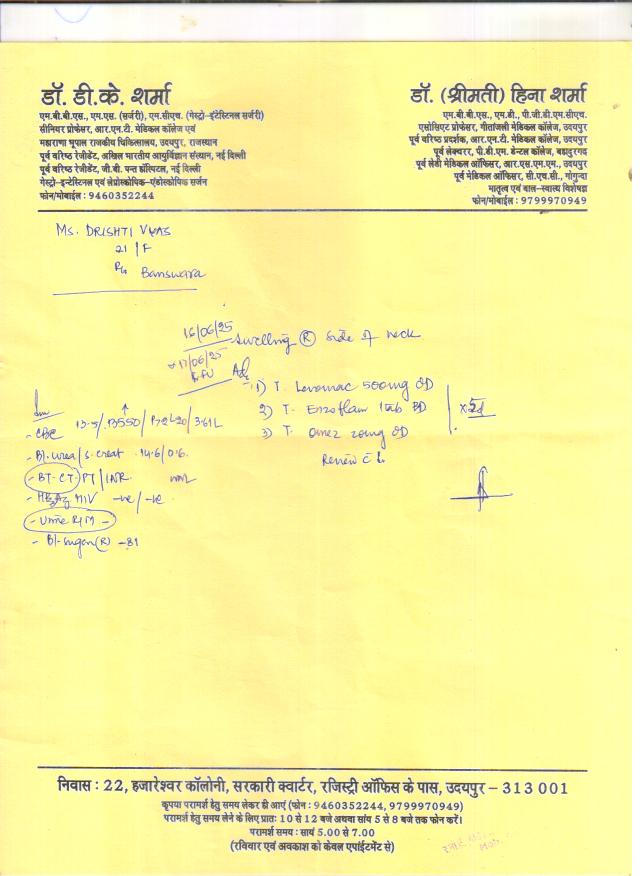 डॉ. डी.के. शर्मा
एम.बी.बी.एस., एम.एस. (सर्जरी), एम.सीएच. (गेस्ट्रो-इंटेस्टिनल सर्जरी)
सीनियर प्रोफेसर, आर.एन.टी. मेडिकल कॉलेज एवं
महाराणा भूपाल राजकीय चिकित्सालय, उदयपुर, राजस्थान
पूर्व वरिष्ठ रेजीडेंट, अखिल भारतीय आयुर्विज्ञान संस्थान, नई दिल्ली
पूर्व वरिष्ठ रेजीडेंट, जी.बी. पन्त हॉस्पिटल, नई दिल्ली
गेस्ट्रो-इन्टेस्टिनल एवं लेप्रोस्कोपिक-एंडोस्कोपिक सर्जन
फोन/मोबाईल : 9460352244
डॉ. (श्रीमती) हिना शर्मा
एम.बी.बी.एस., एम.डी., पी.जी.डी.एम.सीएच.
एसोसिएट प्रोफेसर, गीतांजली मेडिकल कॉलेज, उदयपुर
पूर्व वरिष्ठ प्रदर्शक, आर.एन.टी. मेडिकल कॉलेज, उदयपुर
पूर्व लेक्चरर, पी.डी.एम. डेन्टल कॉलेज, बहादुरगढ
पूर्व लेडी मेडिकल ऑफिसर, आर.एस.एम.एम., उदयपुर
पूर्व मेडिकल ऑफिसर, सी.एच.सी., गोगुन्दा
मातृत्व एवं बाल-स्वास्थ्य विशेषज्ञ
फोन/मोबाईल : 9799970949
Ms. DRISHTI VYAS
21 / F
R/o Banswara
16/06/25
Swelling (R) side of neck
17/06/25
Adv
1) T. Levomac 500mg OD
2) T. Enzoflam 1tab BD
3) T. Omez 20mg OD
x 5d
Review c̄
Inv
- CBC 13.5/ ↑13550/ P72L20/ 3.61L
- Bl. urea/ S. creat 14.6/0.6
- BT.CT. PT/INR
- HBsAg HIV -ve/-ve
- Urine R/M -
- Bl. sugar(R) - 81
निवास : 22, हजारेश्वर कॉलोनी, सरकारी क्वार्टर, रजिस्ट्री ऑफिस के पास, उदयपुर - 313 001
कृपया परामर्श हेतु समय लेकर ही आएं (फोन : 9460352244, 9799970949)
परामर्श हेतु समय लेने के लिए प्रातः 10 से 12 बजे अथवा सांय 5 से 8 बजे तक फोन करें।
परामर्श समय : सायं 5.00 से 7.00
(रविवार एवं अवकाश को केवल एपॉइंटमेंट से)